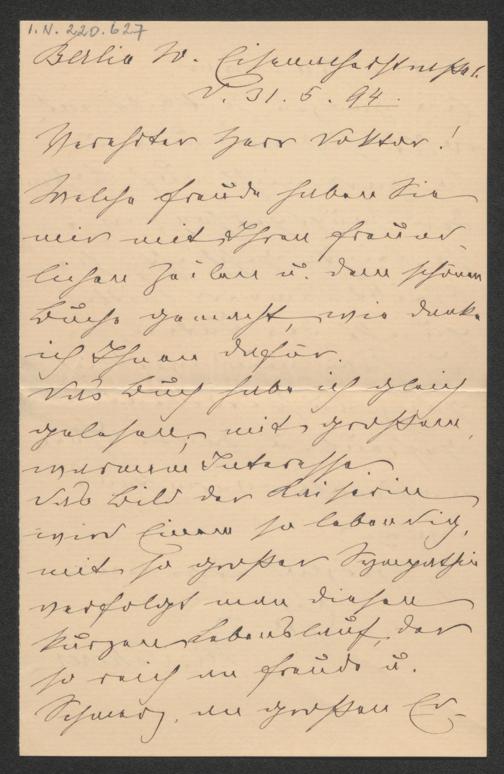 I.N. 220.627
Berlin W. Eisenacherstrasse
d. 31. 5. 94.
Verehrter Herr Doktor!
Welche Freude haben Sie
mir mit Ihren freund-
lichen Zeilen u. dem schönen
Buche gemacht, wie danke
ich Ihnen dafür.
Das Buch habe ich gleich
gelesen, mit großem,
warmem Interesse
Das Bild der Kaiserin
wird Einem so lebendig,
mit so großer Sympathie
verfolgt man diesen
kurzen Lebenslauf, der
so reich an Freude u.
Schmerz, an großen Er-